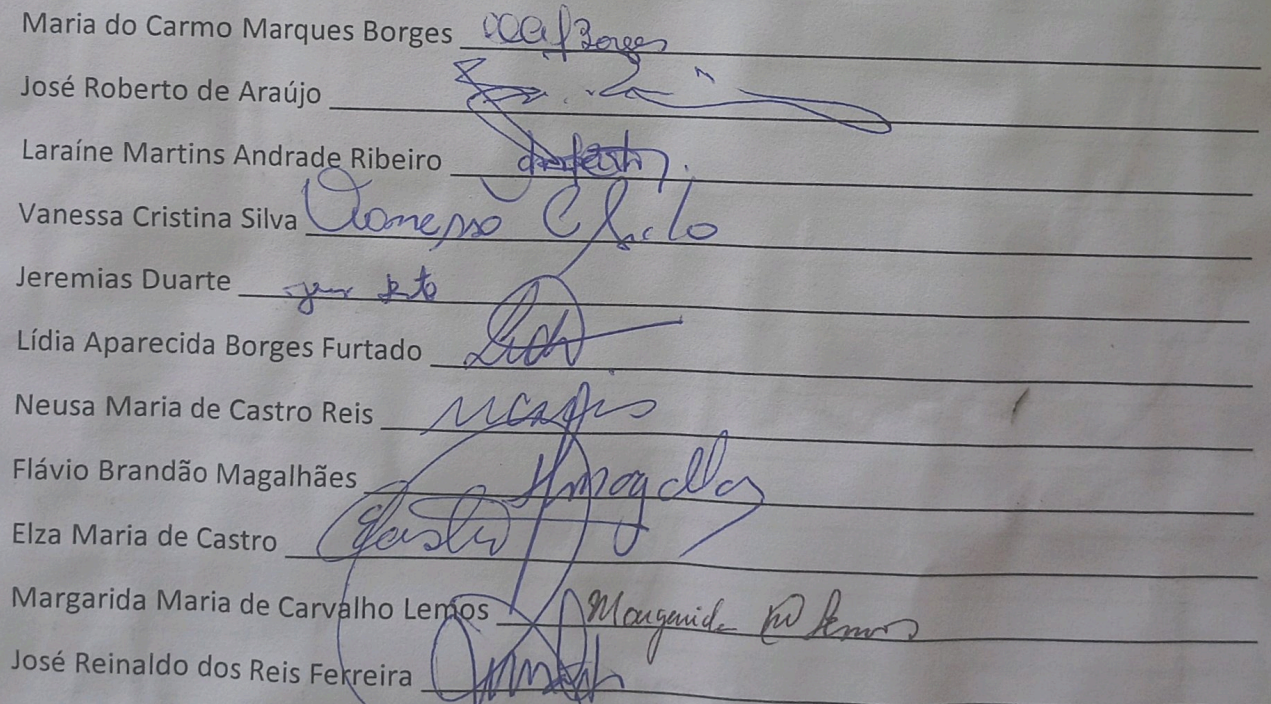 Maria do Carmo Marques Borges Borges
José Roberto de Araújo
Laraíne Martins Andrade Ribeiro
Vanessa Cristina Silva Vanessa C Silva
Jeremias Duarte
Lídia Aparecida Borges Furtado
Neusa Maria de Castro Reis
Flávio Brandão Magalhães
Elza Maria de Castro
Margarida Maria de Carvalho Lemos Margarida Lemos
José Reinaldo dos Reis Ferreira